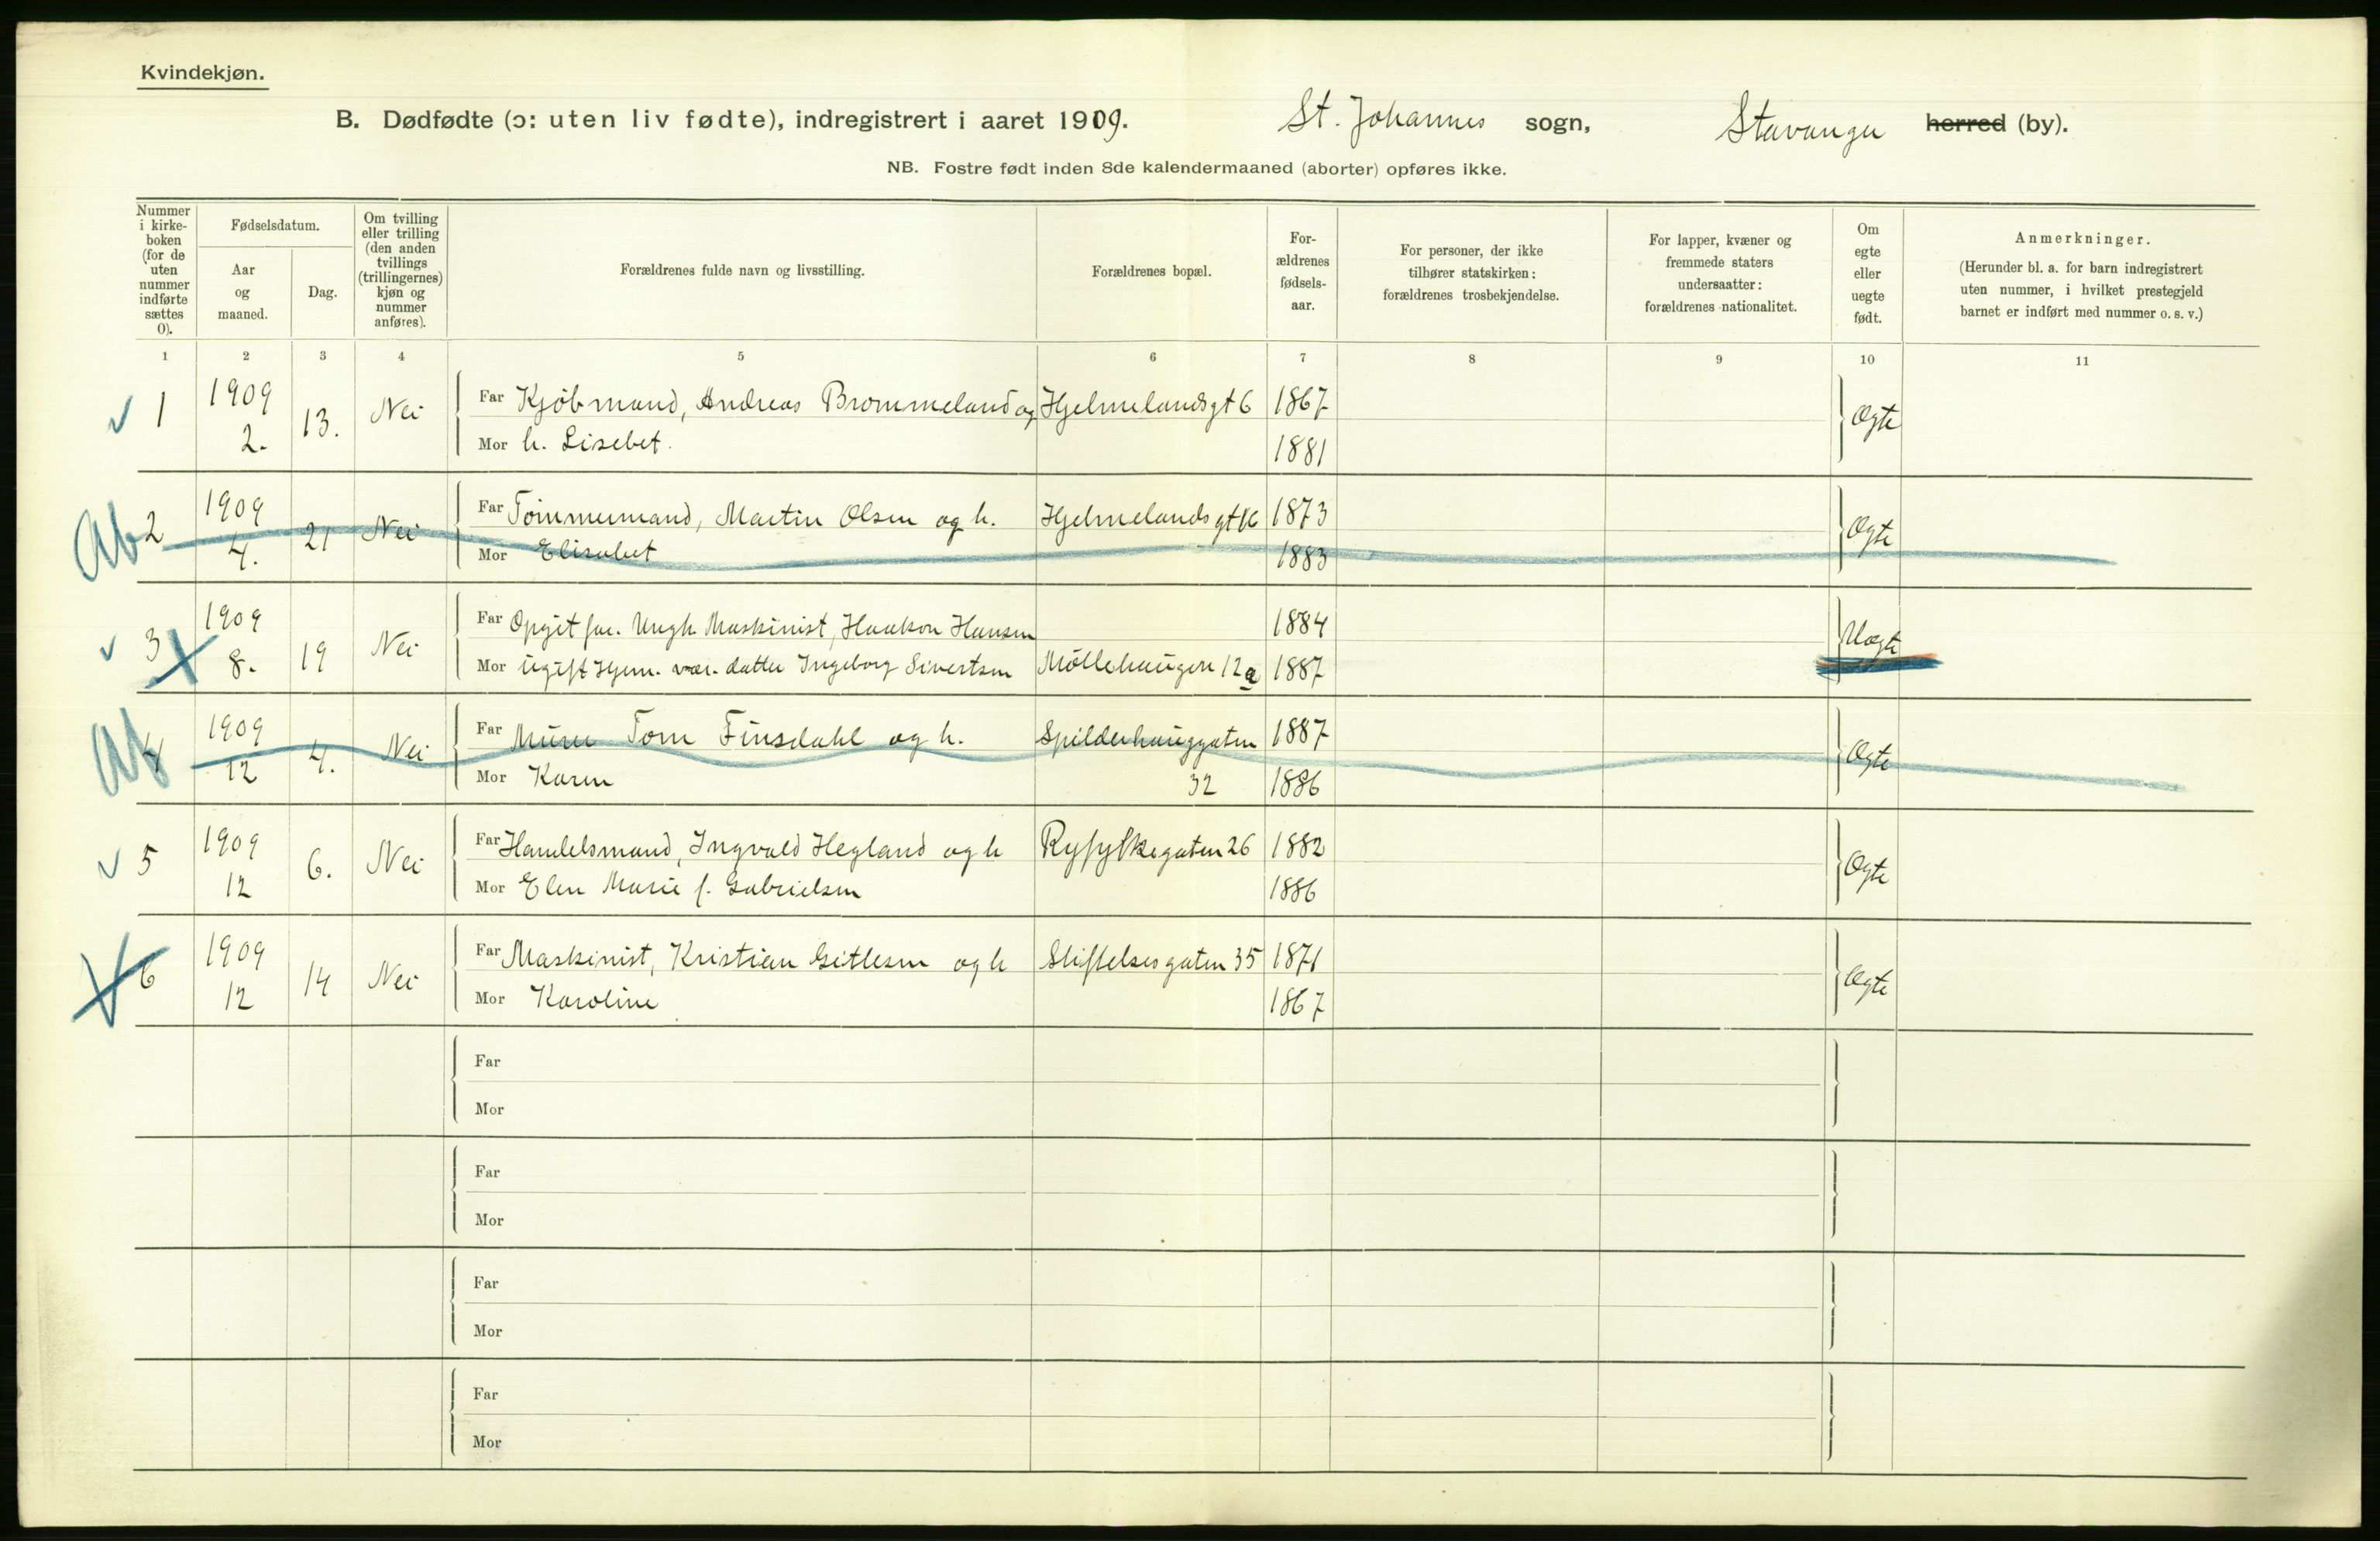 Kvindekjøn.
B. Dødfødte (ɔ: uten liv fødte), indregistrert i aaret 1909. St. Johannes sogn, Stavanger herred (by).
NB. Fostre født inden 8de kalendermaaned (aborter) opføres ikke.
Nummer i kirke-boken (for de uten nummer indførte sættes 0).
Fødselsdatum.
Aar og maaned.
Dag.
Om tvilling eller trilling (den anden tvillings (trillingernes) kjøn og nummer anføres).
Forældrenes fulde navn og livsstilling.
Forældrenes bopæl.
For-ældrenes fødsels-aar.
For personer, der ikke tilhører statskirken: forældrenes trosbekjendelse.
For lapper, kvæner og fremmede staters undersaatter: forældrenes nationalitet.
Om egte eller uegte født.
Anmerkninger.
(Herunder bl. a. for barn indregistrert uten nummer, i hvilket prestegjeld barnet er indført med nummer o. s. v.)
1 2 3 4 5 6 7 8 9 10 11
1 1909 2. 13. Nei Far Kjøbmand, Andreas Brommeland og Hjelmelandsgt 6 1867 Ægte
Mor h. Lisebet. 1881
Ab 2 1909 4. 21 Nei Far Tømmermand, Martin Olsen og h. Hjelmelandsgt 16 1873 Ægte
Mor Elisabet 1883
3 1909 8. 19 Nei Far Opgit far. Ungk. Maskinist, Haakon Hansen 1884 Uægte
Mor ugift Hjem. vær. datter Ingeborg Sivertsen Møllehaugen 12a 1887
Ab 4 1909 12 4. Nei Far Murer Tom Finsdahl og h. Spilderhauggaten 1887 Ægte
Mor Karen 32 1886
5 1909 12 6. Nei Far Handelsmand, Ingvald Hegland og h Ryfylkegaten 26 1882 Ægte
Mor Elen Marie f. Gabrielsen 1886
6 1909 12 14 Nei Far Maskinist, Kristian Gitlesen og h Stiftelsesgaten 35 1871 Ægte
Mor Karoline 1867
Far
Mor
Far
Mor
Far
Mor
Far
Mor